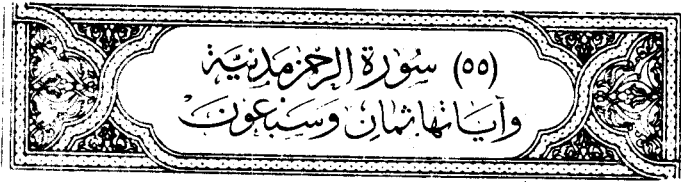 (٥٥) سُورَة الرَّحْمٰن مَدَنِيَّة
وَآيَاتهَا ثَمَانٌ وَسَبْعُونَ